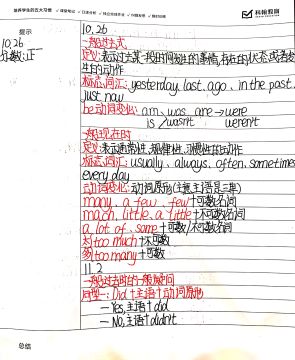 培养学生的五大习惯
提示
10.26
10.26
一般过去式
定义:表示过去某一段时间发生的事情,存在的状态或者发
生的动作
标志词汇: yesterday, last, ago, in the past,
just now
be动词变化: am、was are→were
is / wasn't weren't
一般现在时
定义:表示通常性、规律性、习惯性的动作
标志词汇: usually、always, often, sometimes
every day
动词变化:动词原形(注意主语是三单)
many、a few、few+可数名词
much, little, a little+不可数名词
a lot of、some+可数/不可数名词
too much+不可数
too many+可数
11.2
一般过去时的一般疑问
句型一: Did+主语+动词原形
— Yes,主语+did
— No,主语+didn't
总结